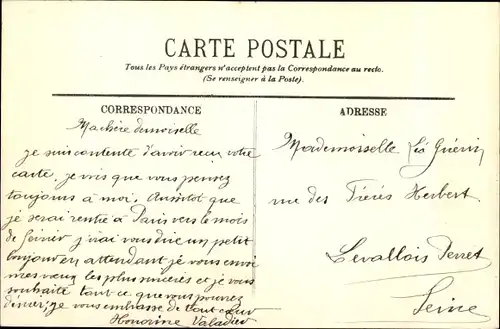 CARTE POSTALE
Tous les Pays étrangers n'acceptent pas la Correspondance au recto.
(Se renseigner à la Poste).
CORRESPONDANCE
Ma chère demoiselle
je suis contente d'avoir reçu votre
carte, je vois que vous pensez
toujours à moi. Aussitôt que
je serai rentré à Paris vers le mois
de février j'irai vous dire un petit
bonjour en attendant je vous envoi
mes vœux les plus sincères et je vous
souhaite tout ce que vous pouvez
désirer, je vous embrasse de tout cœur
Honorine Valadier
ADRESSE
Mademoiselle Guérin
rue des Frères Herbert
Levallois Perret
Seine